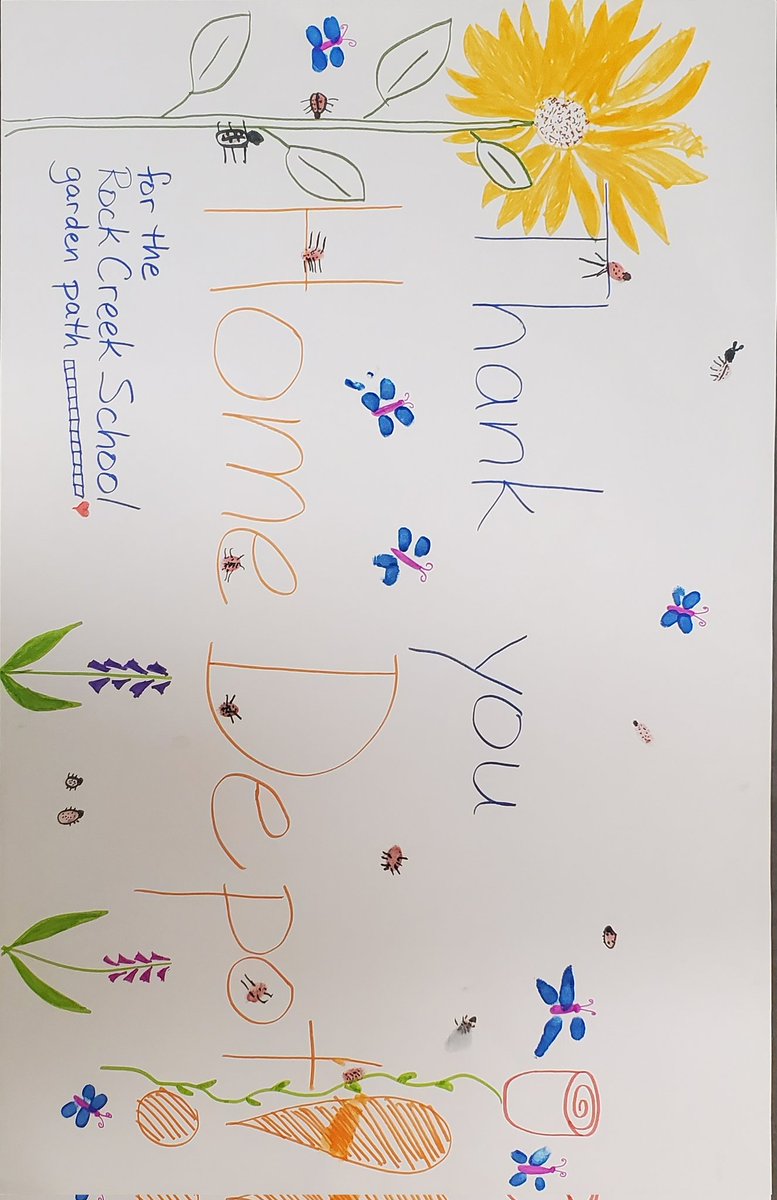 Thank you
Home Depot!
for the
Rock Creek School
garden path